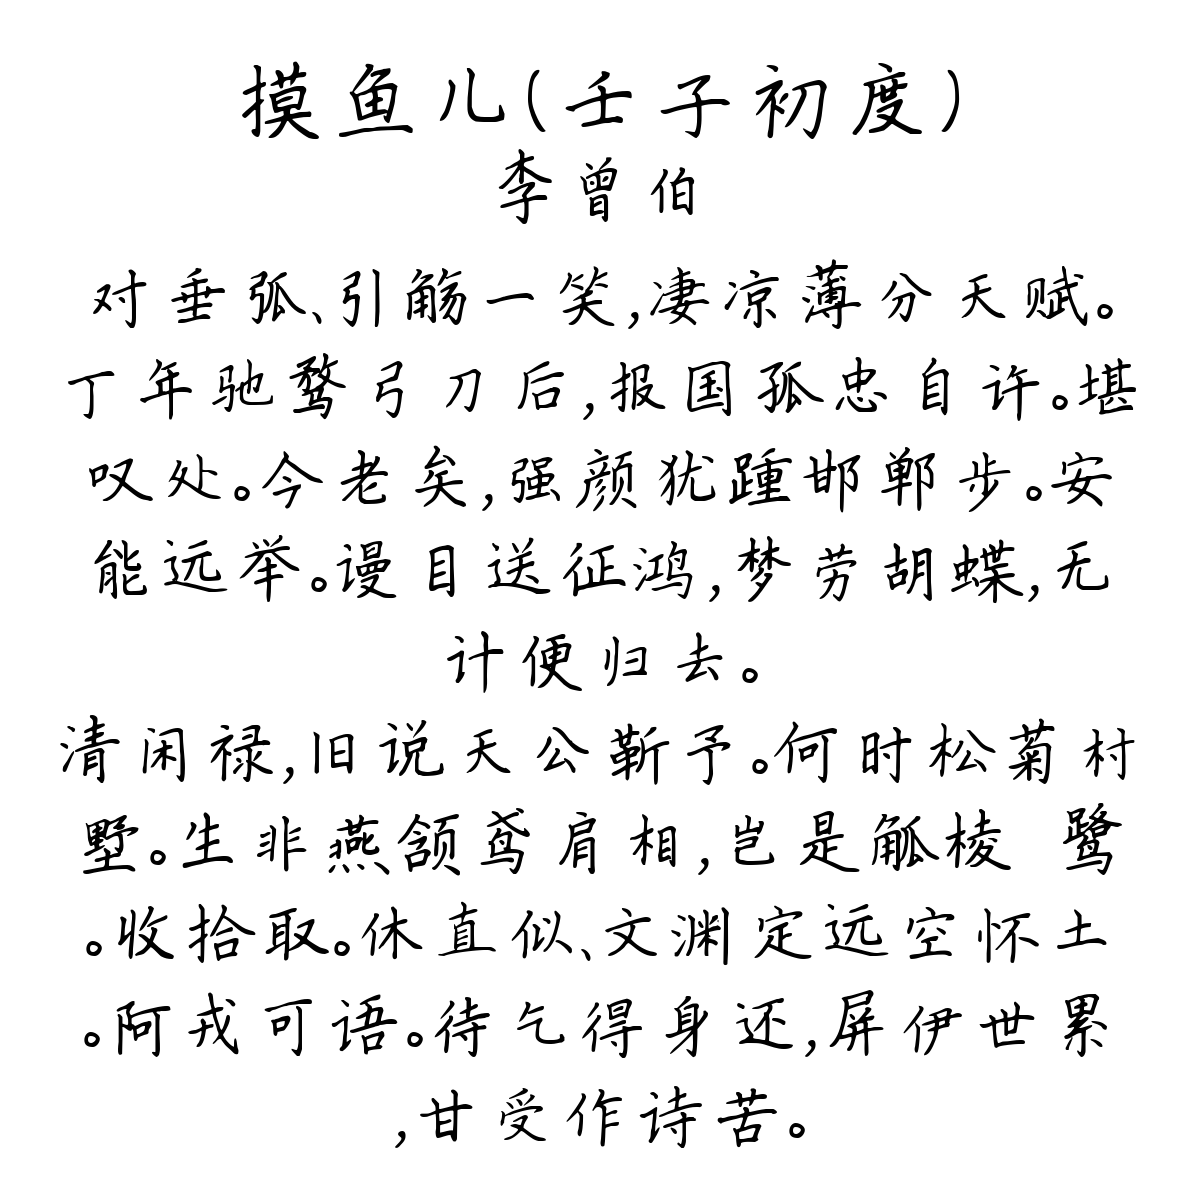 摸鱼儿(壬子初度)
李曾伯
对垂弧、引觞一笑,凄凉薄分天赋。
丁年驰鹜弓刀后,报国孤忠自许。堪
叹处。今老矣,强颜犹踵邯郸步。安
能远举。谩目送征鸿,梦劳胡蝶,无
计便归去。
清闲禄,旧说天公靳予。何时松菊村
墅。生非燕颔鸢肩相,岂是觚棱 鹭
。收拾取。休直似、文渊定远空怀土
。阿戎可语。待乞得身还,屏伊世累
,甘受作诗苦。